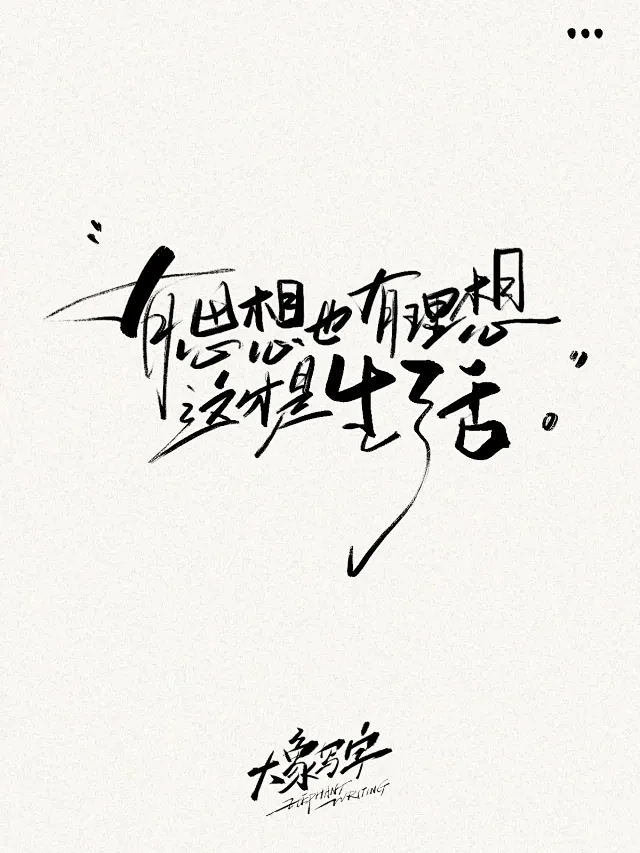 “有思想也有理想
这才是生活。”
大象写字
ELEPHANT WRITING